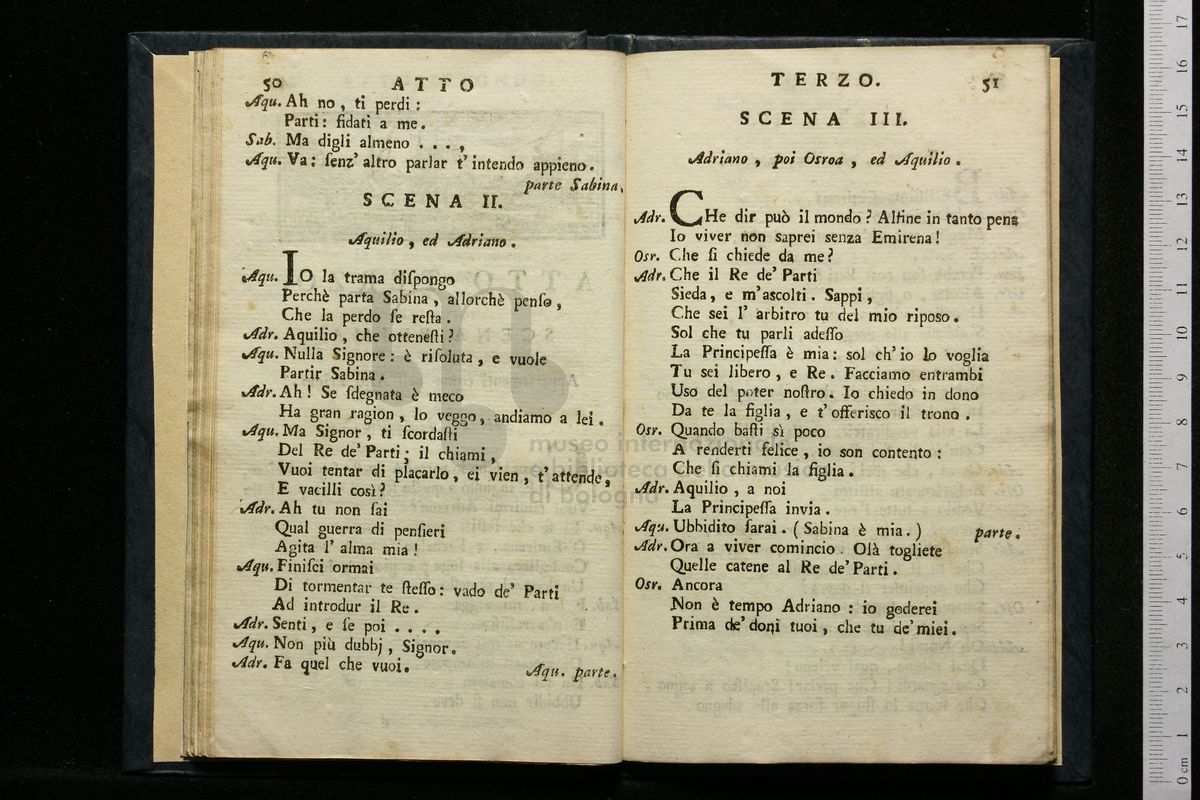 50 ATTO
Aqu. Ah no, ti perdi:
Parti: fidati a me.
Sab. Ma digli almeno . . . ,
Aqu. Va: ſenz' altro parlar t' intendo appieno.
parte Sabina.
SCENA II.
Aquilio, ed Adriano.
Aqu. IO la trama diſpongo
Perchè parta Sabina, allorchè penſo,
Che la perdo ſe reſta.
Adr. Aquilio, che otteneſti?
Aqu. Nulla Signore: è riſoluta, e vuole
Partir Sabina.
Adr. Ah! Se ſdegnata è meco
Ha gran ragion, lo veggo, andiamo a lei.
Aqu. Ma Signor, ti ſcordaſti
Del Re de' Parti; il chiami,
Vuoi tentar di placarlo, ei vien, t' attende,
E vacilli così?
Adr. Ah tu non ſai
Qual guerra di penſieri
Agita l' alma mia!
Aqu. Finiſci ormai
Di tormentar te ſteſſo: vado de' Parti
Ad introdur il Re.
Adr. Senti, e ſe poi . . . .
Aqu. Non più dubbj, Signor.
Adr. Fa quel che vuoi.
Aqu. parte.
TERZO. 51
SCENA III.
Adriano, poi Osroa, ed Aquilio.
Adr. CHe dir può il mondo? Alfine in tanto pena
Io viver non saprei senza Emirena!
Osr. Che ſi chiede da me?
Adr. Che il Re de' Parti
Sieda, e m'ascolti. Sappi,
Che sei l' arbitro tu del mio riposo.
Sol che tu parli adeſſo
La Principeſſa è mia: sol ch' io lo voglia
Tu sei libero, e Re. Facciamo entrambi
Uso del poter noſtro. Io chiedo in dono
Da te la figlia, e t' offerisco il trono.
Osr. Quando baſti sì poco
A renderti felice, io son contento:
Che ſi chiami la figlia.
Adr. Aquilio, a noi
La Principeſſa invia.
Aqu. Ubbidito ſarai. (Sabina è mia.) parte.
Adr. Ora a viver comincio. Olà togliete
Quelle catene al Re de' Parti.
Osr. Ancora
Non è tempo Adriano: io goderei
Prima de' doni tuoi, che tu de' miei.
museo internazionale
e biblioteca della musica
di bologna
0 cm 1 2 3 4 5 6 7 8 9 10 11 12 13 14 15 16 17